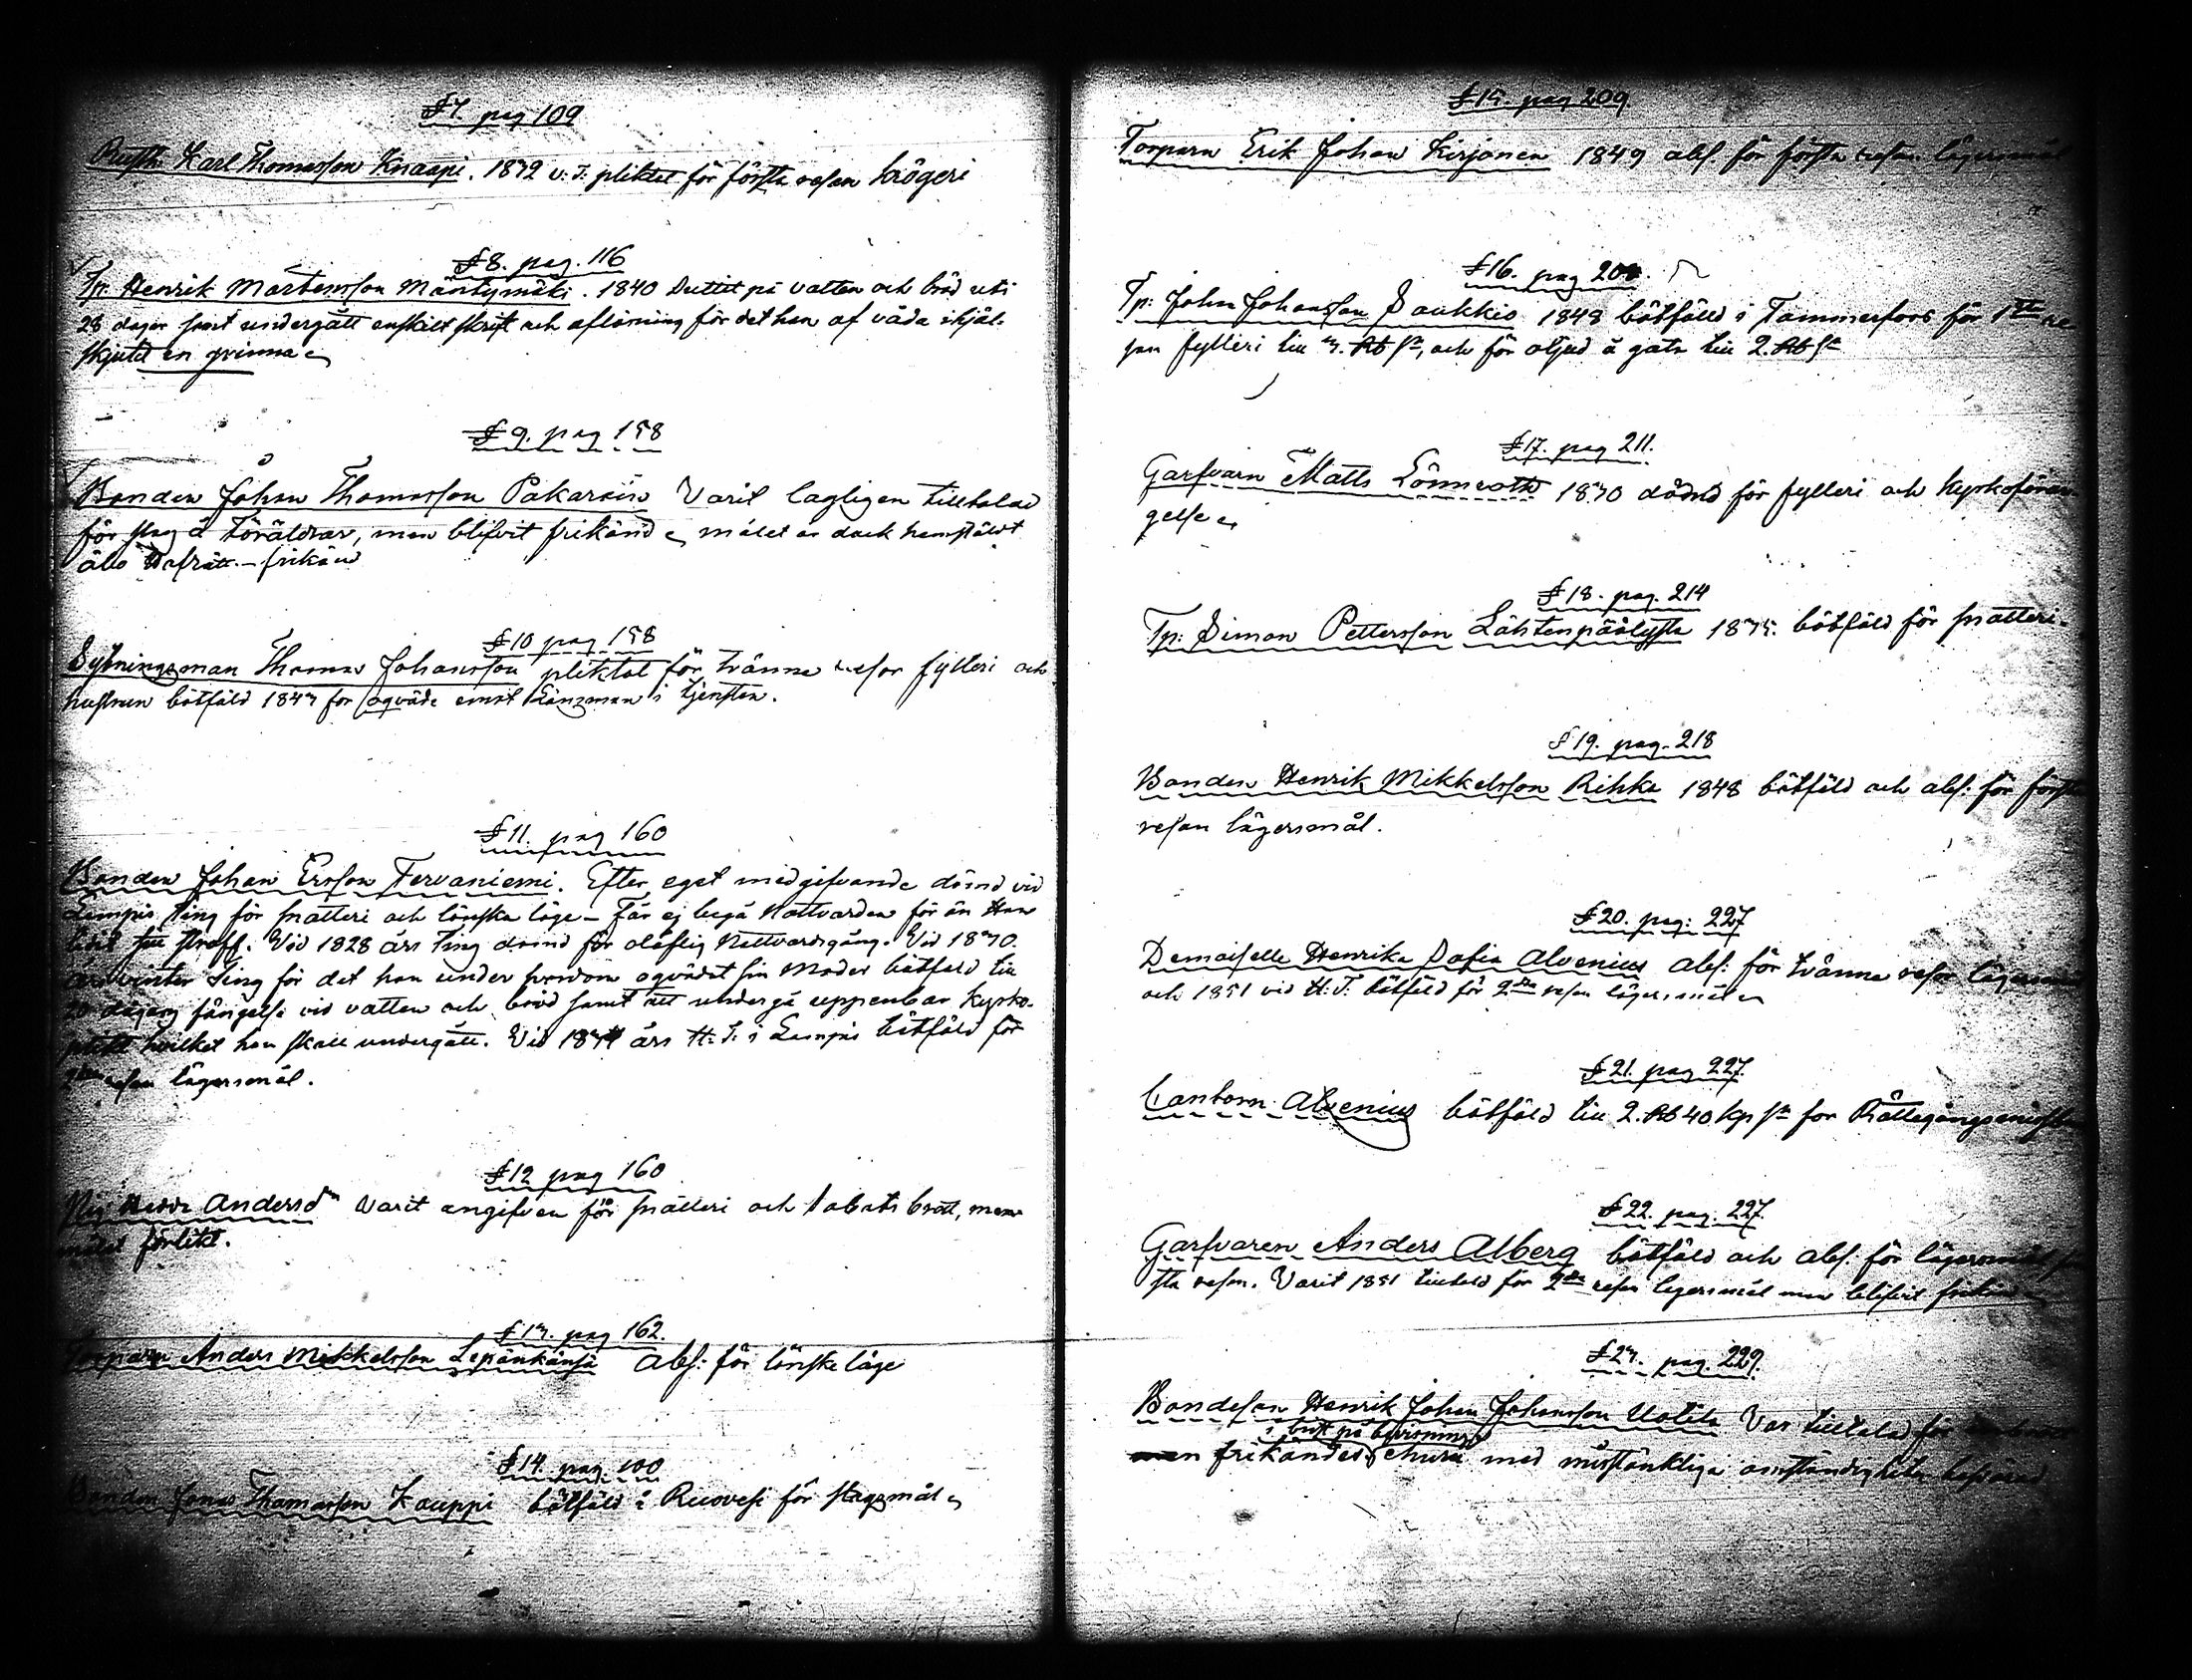 §7. pag 109
Rusth. Karl Thomasson Knaapi. 1832 v. T. pliktat för första resan krögeri
§8. pag. 116
Tp. Henrik Mårtensson Mäntymäki. 1840 suttit på vatten och bröd uti
28 dagar samt undergått enskilt skrift och aflösning för det han af våda ihjäl-
skjutit en qvinna
§9. pag 158
Bonden Johan Thomasson Pakarain Varit lagligen tilltalad
för slag å Föräldrar, men blifvit frikänd målet är dock hemstäldt
Åbo Hofrätt. – frikänd
§10 pag 158
Sytningsman Thomas Johansson pliktat för tvänne resor fylleri och
hustrun bötfäld 1843 for oqväde emot Länzman i tjensten.
§11. pag 160
Bonden Johan Ersson Tervaniemi. Efter eget medgifvande dömd vid
Lempis ting för snatteri och lönska läge – Får ej begå Nattvarden för än Han
lidit sitt straff. Vid 1828 års Ting dömd för olaflig Nattvardsgång. Vid 1830
års vinter Ting för det han under oqvädat sin Moder bötfäld till
20 dagars fängelse vid vatten och bröd samt att undergå uppenbar kyrko-
plikt hvilket han skall undergått. Vid års H: T. i Lempis bötfäld för
resan lägersmål.
§12 pag 160
Andersdr Varit angifven för snatteri och Sabats brott, men
målet förlikt.
§13. pag 162.
Torparn Anders Mikkelsson Lepänkänsä Abs: för lönske läge
§14. pag. 100
Bonden Jonas Thomasson Kauppi bötfäld i Ruovesi för slagsmål
§15. pag 209
Torparn Erik Johan Kirjonen 1849 abs. för första resan lägersmål
§16. pag
Tp: Johan Johansson Saukkio 1848 bötfäld i Tammerfors för 1sta re-
san fylleri till 3. Rb sr, och för oljud å gata till 2. Rb sr
§17. pag 211.
Garfvarn Matts Lönnroth 1830 dömd för fylleri och kyrkoförar-
gelse
§18. pag. 214
Tp: Simon Pettersson Lähtenpäälystä 1835. bötfäld för snatteri.
§19. pag. 218
Bonden Henrik Mikkelsson Rihka 1848 bötfäld och abs: för första
resan lägersmål.
§20. pag: 227
Demoiselle Henrika Sofia Alvenius Abs: för tvänne resor lägersmål
och 1851 vid H: T. bötfäld för 2dra resan lägersmål
§21. pag 227.
Cantorn Alvenius bötfäld till 2. Rb 40 kp sr for Rättegångs
§22. pag. 227.
Garfvaren Anders Alberg bötfäld och abs. för lägersmål för
sta resan. Varit 1851 tilltald för 2dra resan legersmål men blifvit frikänd
§23. pag. 229.
Bondeson Henrik Johan Johansson Uotila Var tilltalad för
i brist på bevisning
men frikändes, ehuru med misstänkliga omständigheter besvärad